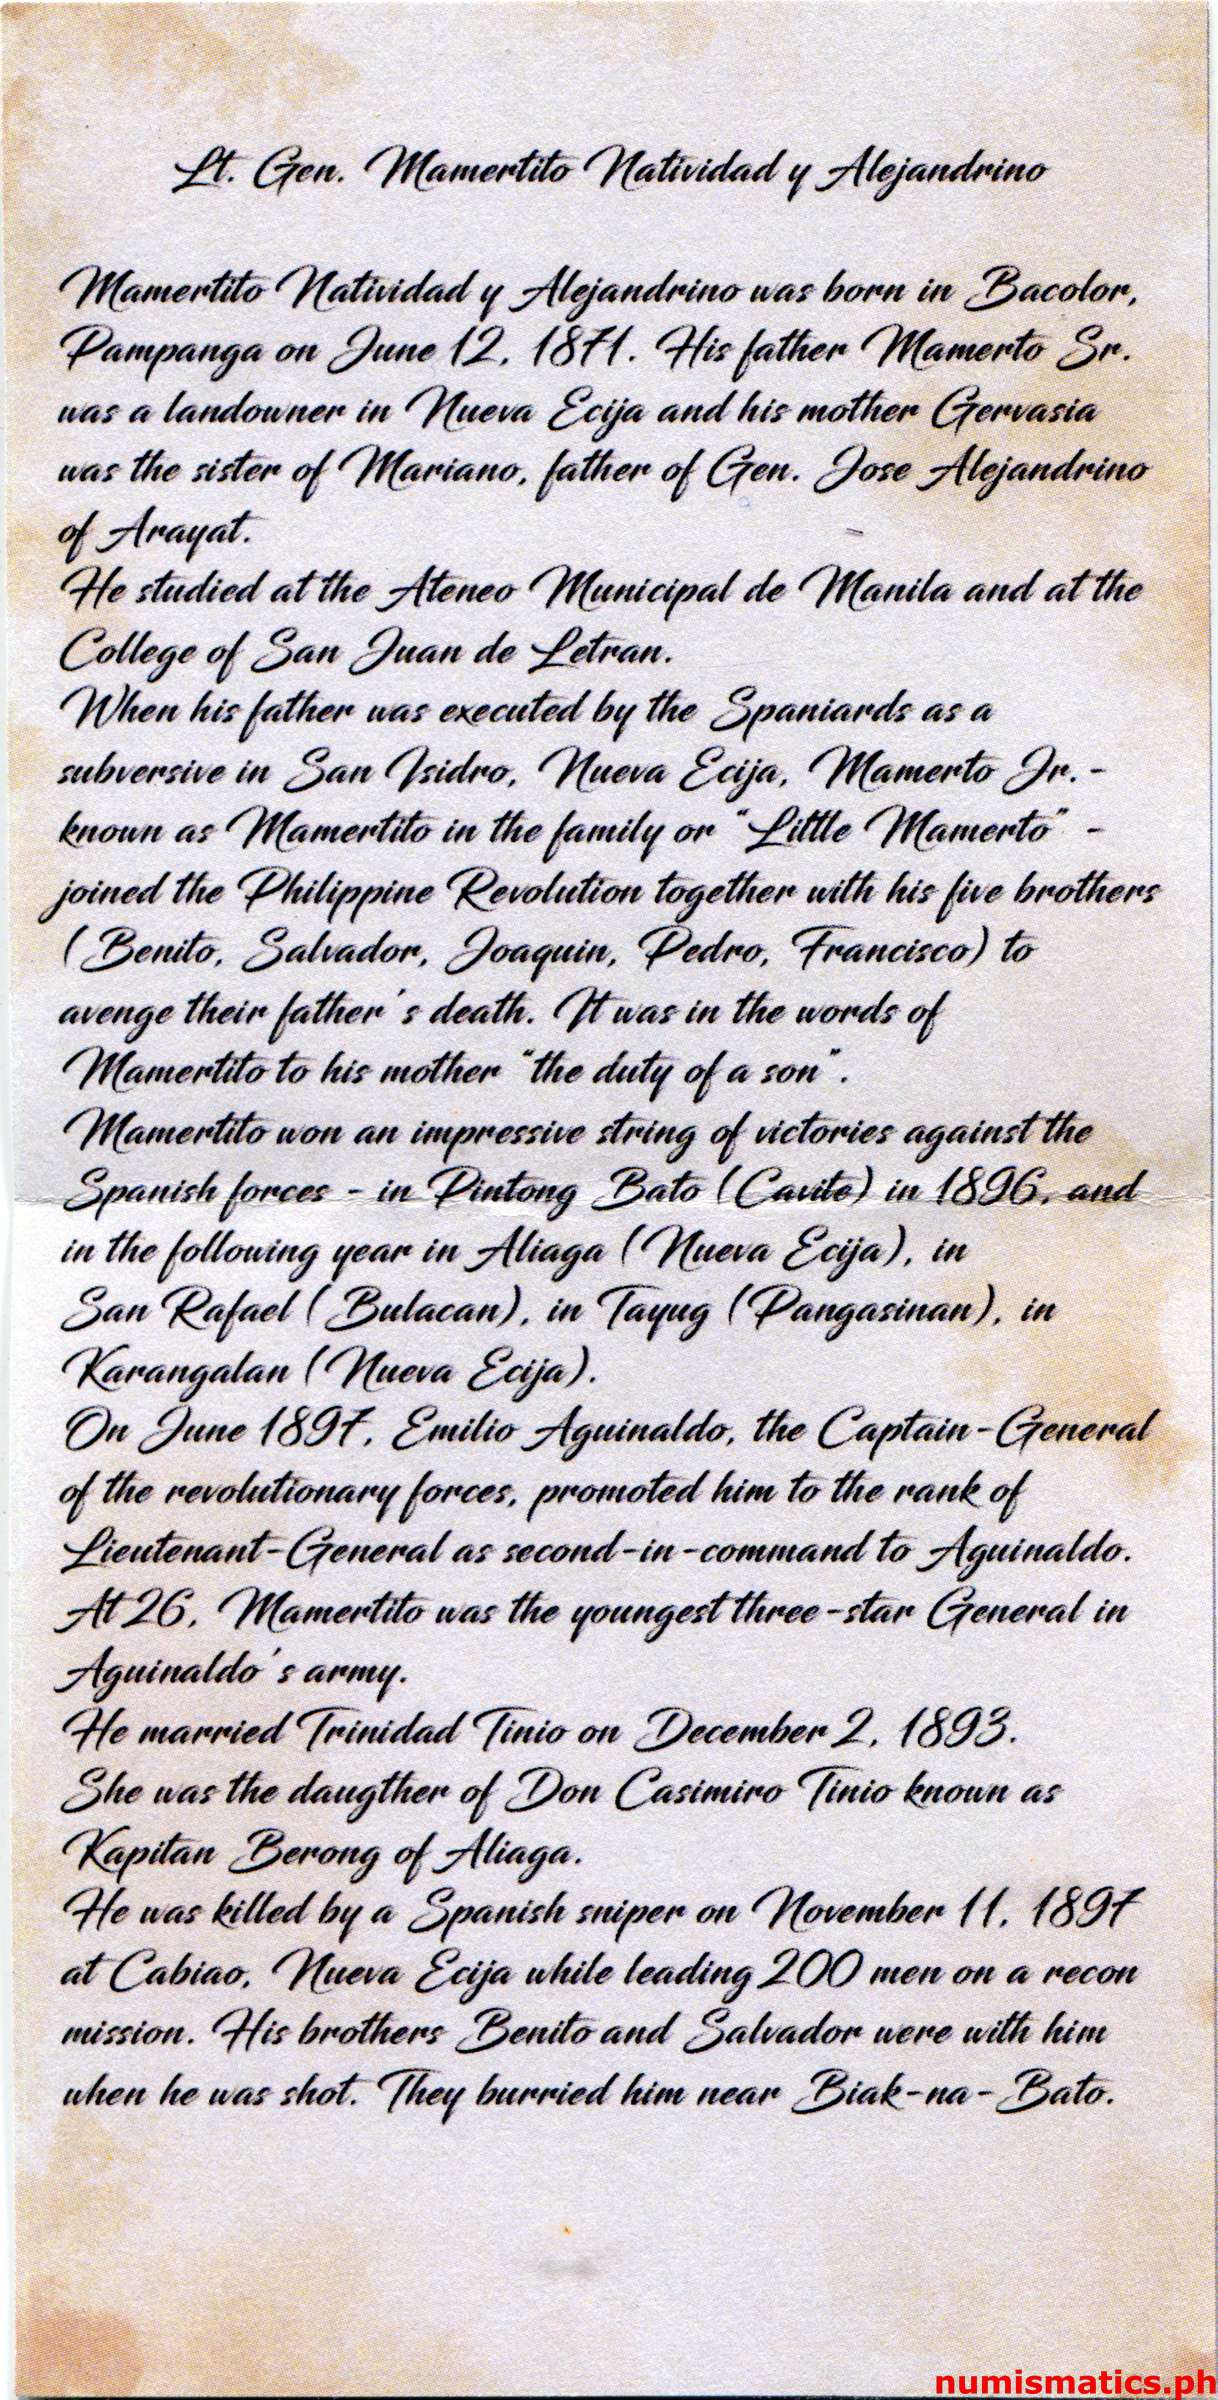 Lt. Gen. Mamertito Natividad y Alejandrino
Mamertito Natividad y Alejandrino was born in Bacolor,
Pampanga on June 12, 1871. His father Mamerto Sr.
was a landowner in Nueva Ecija and his mother Gervasia
was the sister of Mariano, father of Gen. Jose Alejandrino
of Arayat.
He studied at the Ateneo Municipal de Manila and at the
College of San Juan de Letran.
When his father was executed by the Spaniards as a
subversive in San Isidro, Nueva Ecija, Mamerto Jr. -
known as Mamertito in the family or "Little Mamerto" -
joined the Philippine Revolution together with his five brothers
(Benito, Salvador, Joaquin, Pedro, Francisco) to
avenge their father's death. It was in the words of
Mamertito to his mother "the duty of a son".
Mamertito won an impressive string of victories against the
Spanish forces - in Pintong Bato (Cavite) in 1896, and
in the following year in Aliaga (Nueva Ecija), in
San Rafael (Bulacan), in Tayug (Pangasinan), in
Karangalan (Nueva Ecija).
On June 1897, Emilio Aguinaldo, the Captain-General
of the revolutionary forces, promoted him to the rank of
Lieutenant-General as second-in-command to Aguinaldo.
At 26, Mamertito was the youngest three-star General in
Aguinaldo's army.
He married Trinidad Tinio on December 2, 1893.
She was the daugther of Don Casimiro Tinio known as
Kapitan Berong of Aliaga.
He was killed by a Spanish sniper on November 11, 1897
at Cabiao, Nueva Ecija while leading 200 men on a recon
mission. His brothers Benito and Salvador were with him
when he was shot. They burried him near Biak-na-Bato.
numismatics.ph